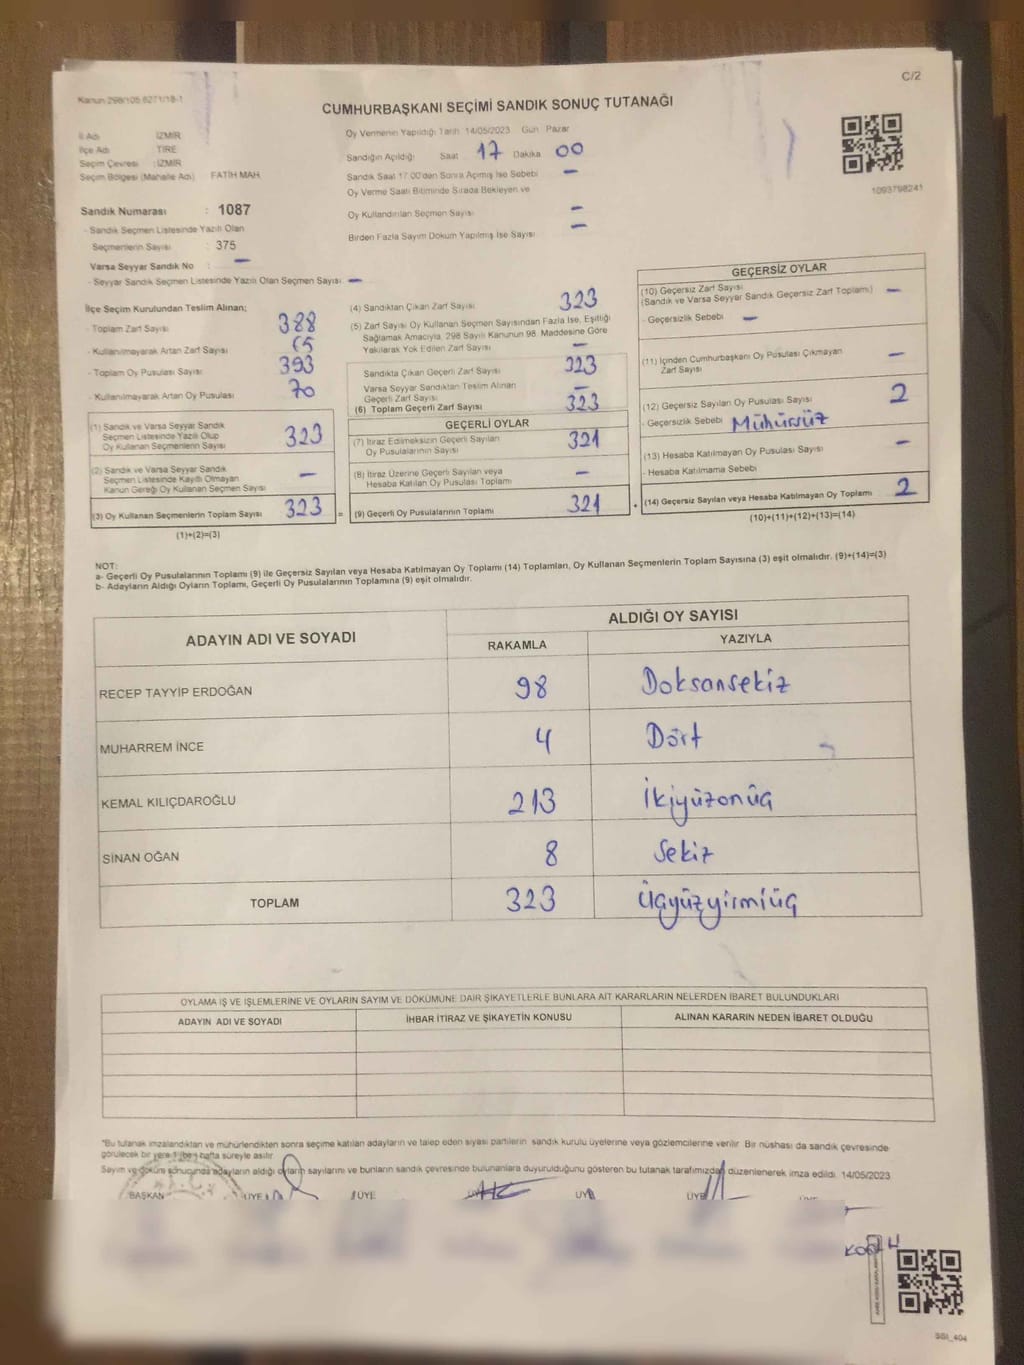 C/2
Kanun 298/105 6271/18-1
CUMHURBAŞKANI SEÇİMİ SANDIK SONUÇ TUTANAĞI
İl Adı İZMİR
İlçe Adı TİRE
Seçim Çevresi : İZMİR
Seçim Bölgesi (Mahalle Adı) FATİH MAH.
Sandık Numarası : 1087
- Sandık Seçmen Listesinde Yazılı Olan
Seçmenlerin Sayısı : 375
Varsa Seyyar Sandık No : –
- Seyyar Sandık Seçmen Listesinde Yazılı Olan Seçmen Sayısı –
Oy Vermenin Yapıldığı Tarih 14/05/2023 Gün Pazar
Sandığın Açıldığı Saat 17 Dakika 00
Sandık Saat 17:00'den Sonra Açılmış İse Sebebi –
Oy Verme Saati Bitiminde Sırada Bekleyen ve
Oy Kullandırılan Seçmen Sayısı –
Birden Fazla Sayım Döküm Yapılmış İse Sayısı –
1093798241
İlçe Seçim Kurulundan Teslim Alınan;
- Toplam Zarf Sayısı 388
- Kullanılmayarak Artan Zarf Sayısı 65
- Toplam Oy Pusulası Sayısı 393
- Kullanılmayarak Artan Oy Pusulası 70
(1) Sandık ve Varsa Seyyar Sandık
Seçmen Listesinde Yazılı Olup
Oy Kullanan Seçmenlerin Sayısı 323
(2) Sandık ve Varsa Seyyar Sandık
Seçmen Listesinde Kayıtlı Olmayan
Kanun Gereği Oy Kullanan Seçmen Sayısı –
(3) Oy Kullanan Seçmenlerin Toplam Sayısı 323 =
(1)+(2)=(3)
(4) Sandıktan Çıkan Zarf Sayısı 323
(5) Zarf Sayısı Oy Kullanan Seçmen Sayısından Fazla İse, Eşitliği
Sağlamak Amacıyla, 298 Sayılı Kanunun 98. Maddesine Göre
Yakılarak Yok Edilen Zarf Sayısı –
Sandıkta Çıkan Geçerli Zarf Sayısı 323
Varsa Seyyar Sandıktan Teslim Alınan
Geçerli Zarf Sayısı –
(6) Toplam Geçerli Zarf Sayısı 323
GEÇERLİ OYLAR
(7) İtiraz Edilmeksizin Geçerli Sayılan
Oy Pusulalarının Sayısı 321
(8) İtiraz Üzerine Geçerli Sayılan veya
Hesaba Katılan Oy Pusulası Toplamı –
(9) Geçerli Oy Pusulalarının Toplamı 321 +
GEÇERSİZ OYLAR
(10) Geçersiz Zarf Sayısı
(Sandık ve Varsa Seyyar Sandık Geçersiz Zarf Toplamı) –
- Geçersizlik Sebebi –
(11) İçinden Cumhurbaşkanı Oy Pusulası Çıkmayan
Zarf Sayısı –
(12) Geçersiz Sayılan Oy Pusulası Sayısı 2
- Geçersizlik Sebebi Mühürsüz
(13) Hesaba Katılmayan Oy Pusulası Sayısı –
- Hesaba Katılmama Sebebi
(14) Geçersiz Sayılan veya Hesaba Katılmayan Oy Toplamı 2
(10)+(11)+(12)+(13)=(14)
NOT:
a- Geçerli Oy Pusulalarının Toplamı (9) ile Geçersiz Sayılan veya Hesaba Katılmayan Oy Toplamı (14) Toplamları, Oy Kullanan Seçmenlerin Toplam Sayısına (3) eşit olmalıdır. (9)+(14)=(3)
b- Adayların Aldığı Oyların Toplamı, Geçerli Oy Pusulalarının Toplamına (9) eşit olmalıdır.
ADAYIN ADI VE SOYADI
ALDIĞI OY SAYISI
RAKAMLA YAZIYLA
RECEP TAYYİP ERDOĞAN 98 Doksansekiz
MUHARREM İNCE 4 Dört
KEMAL KILIÇDAROĞLU 213 İkiyüzonüç
SİNAN OĞAN 8 Sekiz
TOPLAM 323 Üçyüzyirmiüç
OYLAMA İŞ VE İŞLEMLERİNE VE OYLARIN SAYIM VE DÖKÜMÜNE DAİR ŞİKAYETLERLE BUNLARA AİT KARARLARIN NELERDEN İBARET BULUNDUKLARI
ADAYIN ADI VE SOYADI İHBAR İTİRAZ VE ŞİKAYETİN KONUSU ALINAN KARARIN NEDEN İBARET OLDUĞU
*Bu tutanak imzalandıktan ve mühürlendikten sonra seçime katılan adayların ve talep eden siyasi partilerin sandık kurulu üyelerine veya gözlemcilerine verilir. Bir nüshası da sandık çevresinde
görülecek bir yere 1 (bir) hafta süreyle asılır.
Sayım ve döküm sonucunda adayların aldığı oyların sayılarını ve bunların sandık çevresinde bulunanlara duyurulduğunu gösteren bu tutanak tarafımızdan düzenlenerek imza edildi. 14/05/2023
BAŞKAN ÜYE ÜYE ÜYE ÜYE ÜYE ÜYE
SSI_404